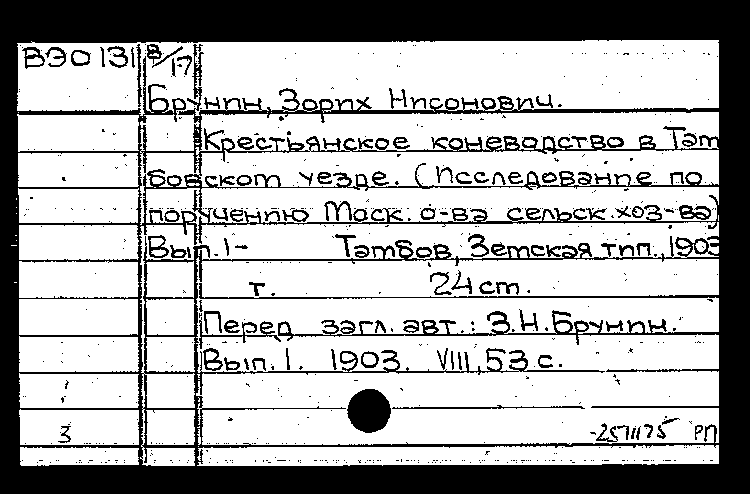 ВЭО 131 8/17
Брунин, Зорих Нисонович.
Крестьянское коневодство в Там
бовском уезде. (Исследование по
поручению Моск. о-ва сельск.хоз-ва)
Вып.1- Тамбов, Земская тип., 1903
т. 24 см.
Перед загл. авт.: З.Н.Брунин.
Вып.1. 1903. VIII, 53 с.
3 РП